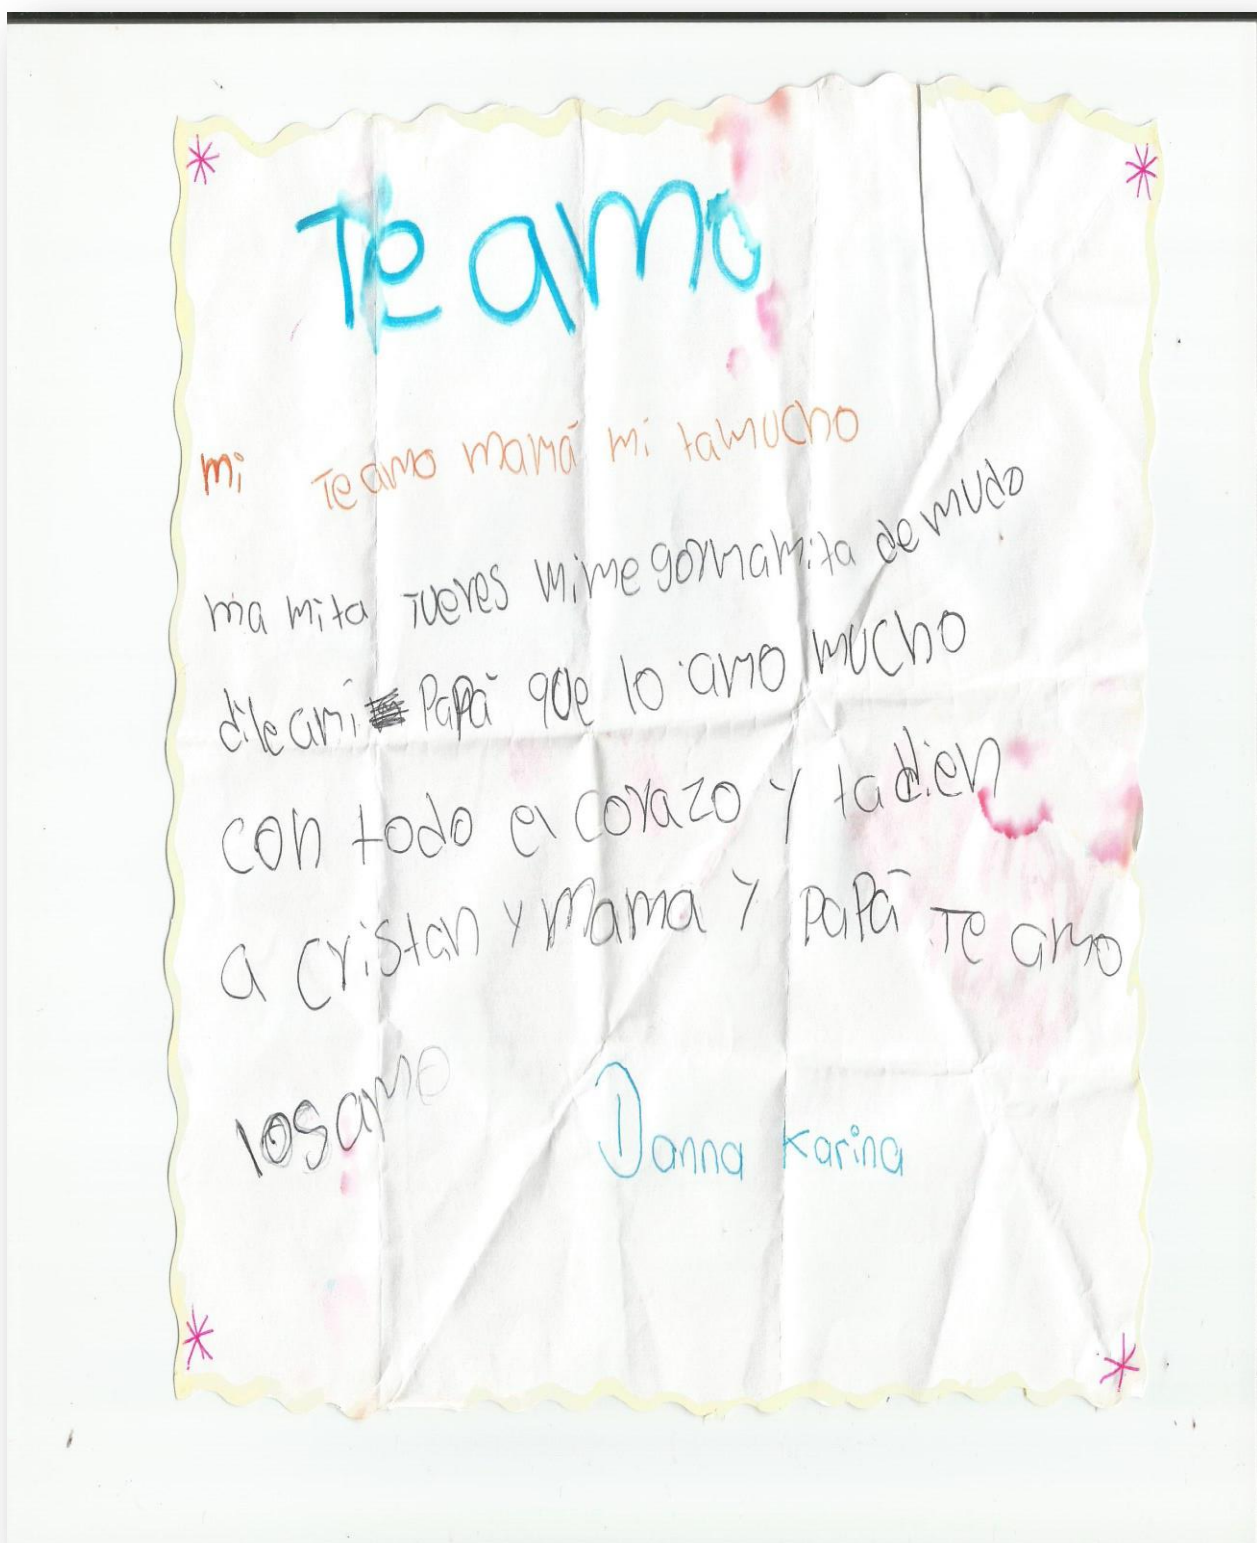 Te amo
mi Te amo mamá mi tamucho
ma mita tueres mimegormamita de mudo
dile ami Papá que lo amo mucho
con todo el corazo y tadien
a cristan y mama y papá Te amo
losamo
Danna Karina